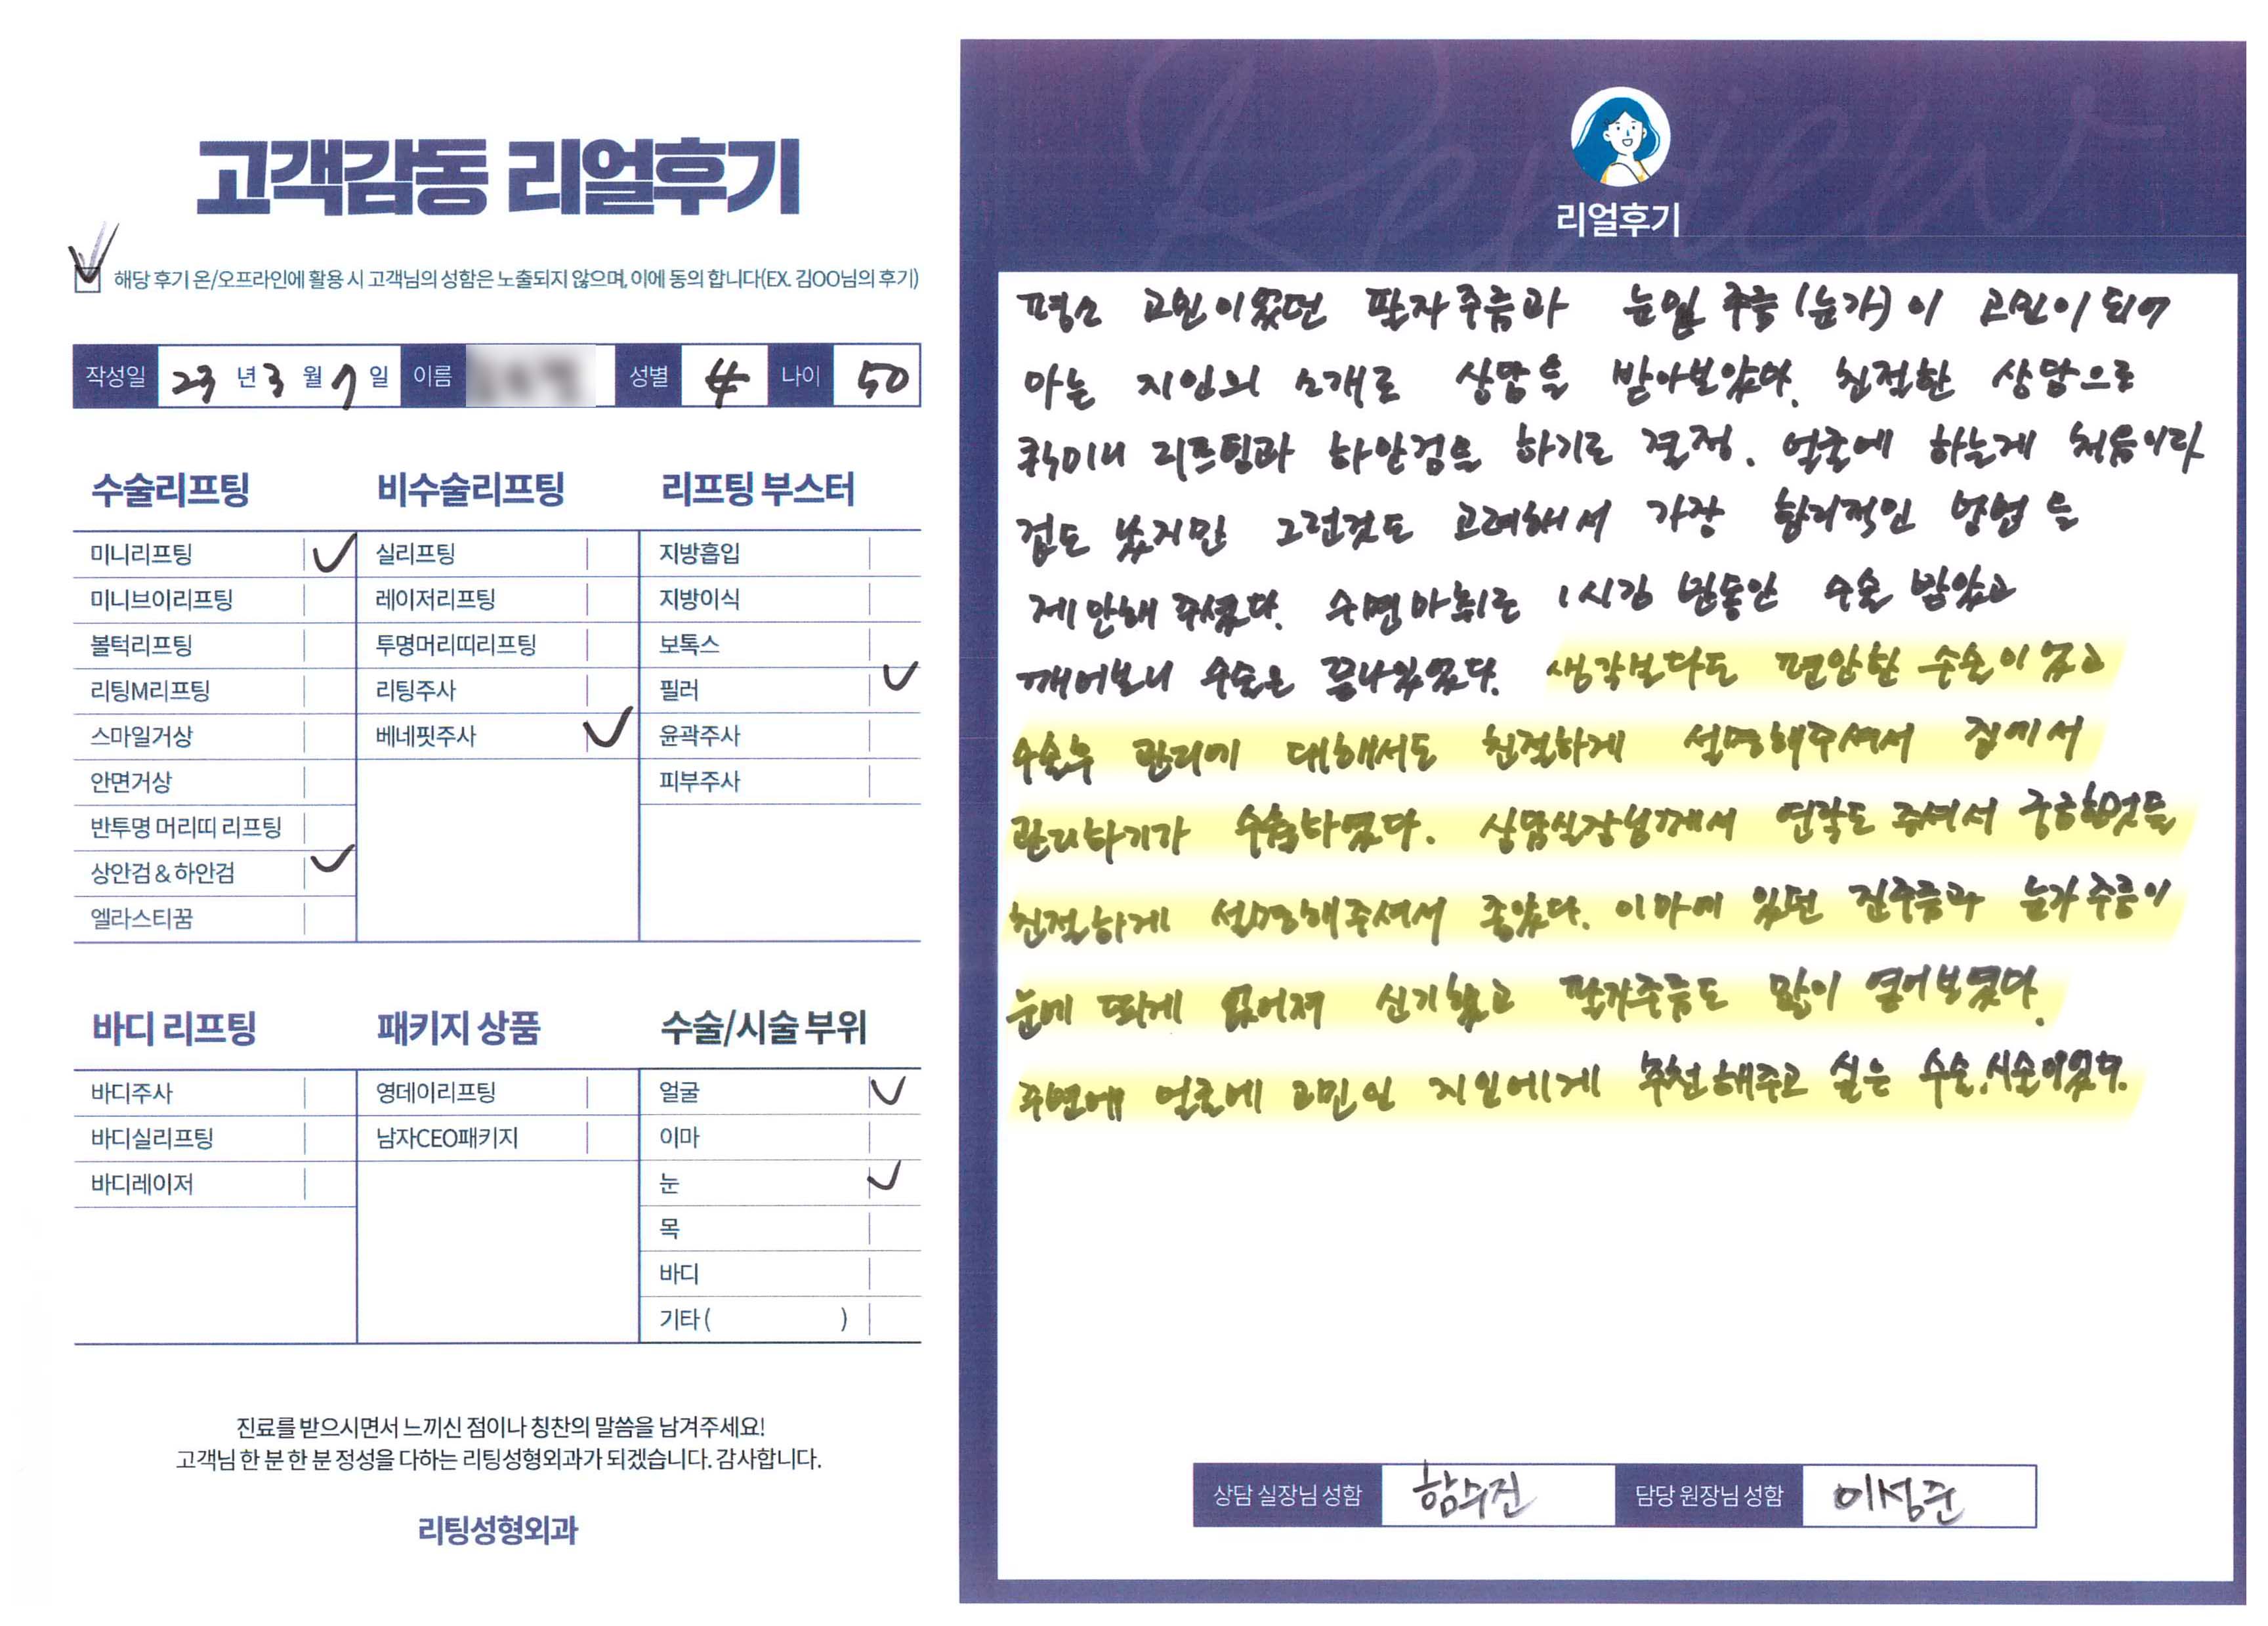 고객감동 리얼후기
해당 후기 온/오프라인에 활용 시 고객님의 성함은 노출되지 않으며, 이에 동의 합니다(EX. 김OO님의 후기)
작성일 23 년 3 월 7 일 이름 성별 나이 50
수술리프팅
미니리프팅
미니브이리프팅
볼턱리프팅
리팅M리프팅
스마일거상
안면거상
반투명 머리띠 리프팅
상안검&하안검
엘라스티꿈
비수술리프팅
실리프팅
레이저리프팅
투명머리띠리프팅
리팅주사
베네핏주사
리프팅 부스터
지방흡입
지방이식
보톡스
필러
윤곽주사
피부주사
바디 리프팅
바디주사
바디실리프팅
바디레이저
패키지 상품
영데이리프팅
남자CEO패키지
수술/시술 부위
얼굴
이마
눈
목
바디
기타 ( )
진료를 받으시면서 느끼신 점이나 칭찬의 말씀을 남겨주세요!
고객님 한 분 한 분 정성을 다하는 리팅성형외과가 되겠습니다. 감사합니다.
리팅성형외과
Review
리얼후기
평소 고민이었던 팔자주름과 눈밑 주름(눈가)이 고민이 되어
아는 지인의 소개로 상담을 받아보았다. 친절한 상담으로
리프팅과 하안검을 하기로 결정. 얼굴에 하는게 처음이라
겁도 났지만 그런것도 고려해서 가장 합리적인 방법을
제안해 주셨다. 수면마취로 1시간 반동안 수술 받았고
깨어보니 수술은 끝나있었다. 생각보다도 편안한 수술이었고
수술후 관리에 대해서도 친절하게 설명해주셔서 집에서
관리하기가 수월하였다. 상담실장님께서 연락도 주셔서 궁금한것들
친절하게 설명해주셔서 좋았다. 이마에 있던 잔주름과 눈가주름이
눈에 띄게 없어져 신기했고 팔자주름도 많이 옅어보였다.
주변에 얼굴에 고민인 지인에게 추천해주고 싶은 수술.시술이었다.
상담 실장님 성함 함수진 담당 원장님 성함 이성준